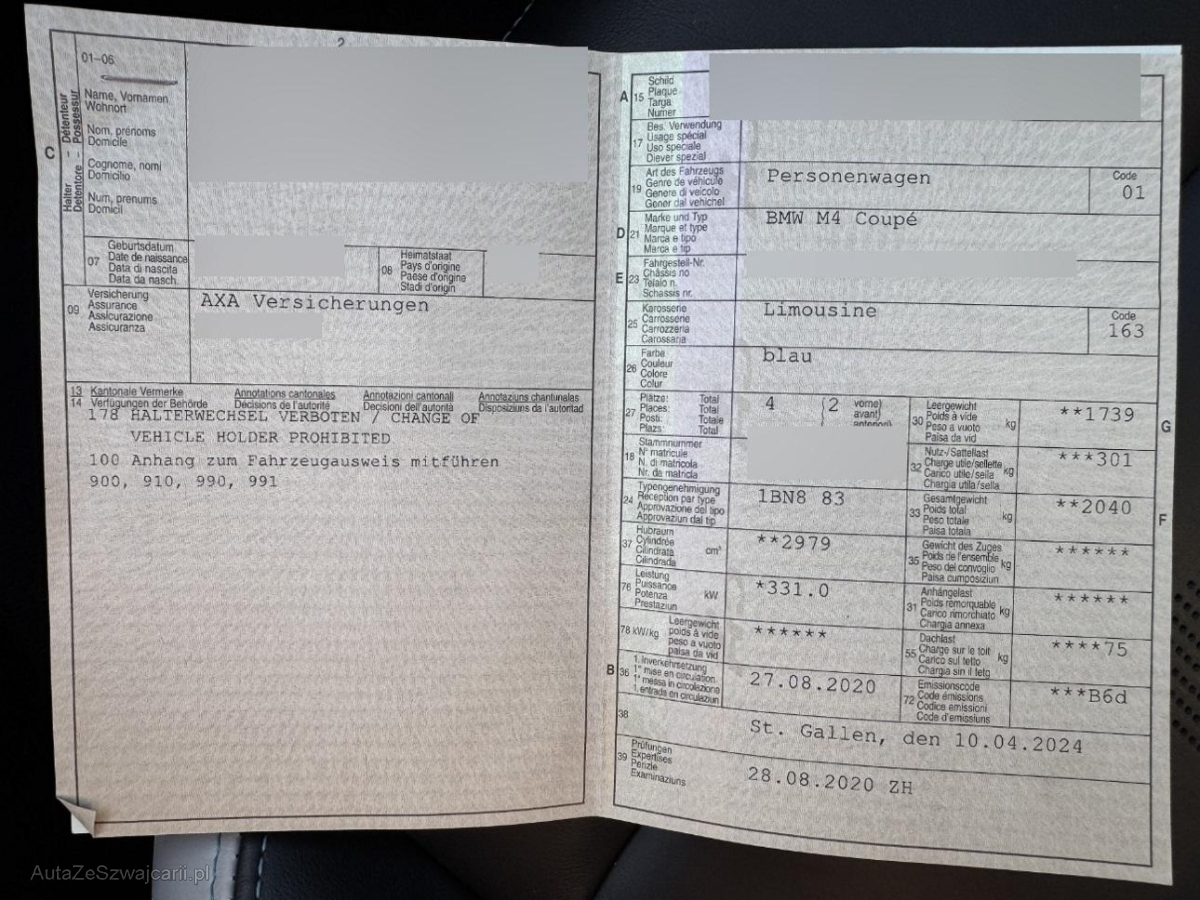 2
01-06
C
Halter - Détenteur
Detentore - Possessur
Name, Vornamen
Wohnort
Nom, prénoms
Domicile
Cognome, nomi
Domicilio
Num, prenums
Domicil
07
Geburtsdatum
Date de naissance
Data di nascita
Data da nasch.
08
Heimatstaat
Pays d'origine
Paese d'origine
Stadi d'origin
09
Versicherung
Assurance
Assicurazione
Assicuranza
AXA Versicherungen
13 Kantonale Vermerke Annotations cantonales Annotazioni cantonali Annotaziuns chantunales
14 Verfügungen der Behörde Décisions de l'autorité Decisioni dell'autorità Disposiziuns da l'autoritad
178 HALTERWECHSEL VERBOTEN / CHANGE OF
VEHICLE HOLDER PROHIBITED
100 Anhang zum Fahrzeugausweis mitführen
900, 910, 990, 991
A
15
Schild
Plaque
Targa
Numer
17
Bes. Verwendung
Usage spécial
Uso speciale
Diever spezial
19
Art des Fahrzeugs
Genre de véhicule
Genere di veicolo
Gener dal vehichel
Personenwagen
Code
01
D
21
Marke und Typ
Marque et type
Marca e tipo
Marca e tip
BMW M4 Coupé
E
23
Fahrgestell-Nr.
Châssis no
Telaio n.
Schassis nr.
25
Karosserie
Carrosserie
Carrozzeria
Carossaria
Limousine
Code
163
26
Farbe
Couleur
Colore
Colur
blau
27
Plätze: Total
Places: Total
Posti: Totale
Plazs: Total
4 (2
vorne)
avant)
anteriori)
30
Leergewicht
Poids à vide
Peso a vuoto
Paisa da vid
kg
**1739
G
18
Stammnummer
N° matricule
N. di matricola
Nr. da matricla
32
Nutz-/Sattellast
Charge utile/sellette
Carico utile/sella
Chargia utila/sella
kg
***301
24
Typengenehmigung
Réception par type
Approvazione del tipo
Approvaziun dal tip
1BN8 83
33
Gesamtgewicht
Poids total
Peso totale
Paisa totala
kg
**2040
F
37
Hubraum
Cylindrée
Cilindrata
Cilindrada
cm³
**2979
35
Gewicht des Zuges
Poids de l'ensemble
Peso del convoglio
Paisa cumposiziun
kg
******
76
Leistung
Puissance
Potenza
Prestaziun
kW
*331.0
31
Anhängelast
Poids remorquable
Carico rimorchiato
Chargia annexa
kg
******
78 kW/kg
Leergewicht
poids à vide
peso a vuoto
paisa da vid
******
55
Dachlast
Charge sur le toit
Carico sul tetto
Chargia sin il tetg
kg
****75
B
36
1. Inverkehrsetzung
1re mise en circulation
1a messa in circolazione
1. entrada en circulaziun
27.08.2020
72
Emissionscode
Code émissions
Codice emissioni
Code d'emissiuns
***B6d
38
St. Gallen, den 10.04.2024
39
Prüfungen
Expertises
Perizie
Examinaziuns
28.08.2020 ZH
AutaZeSzwajcarii.pl